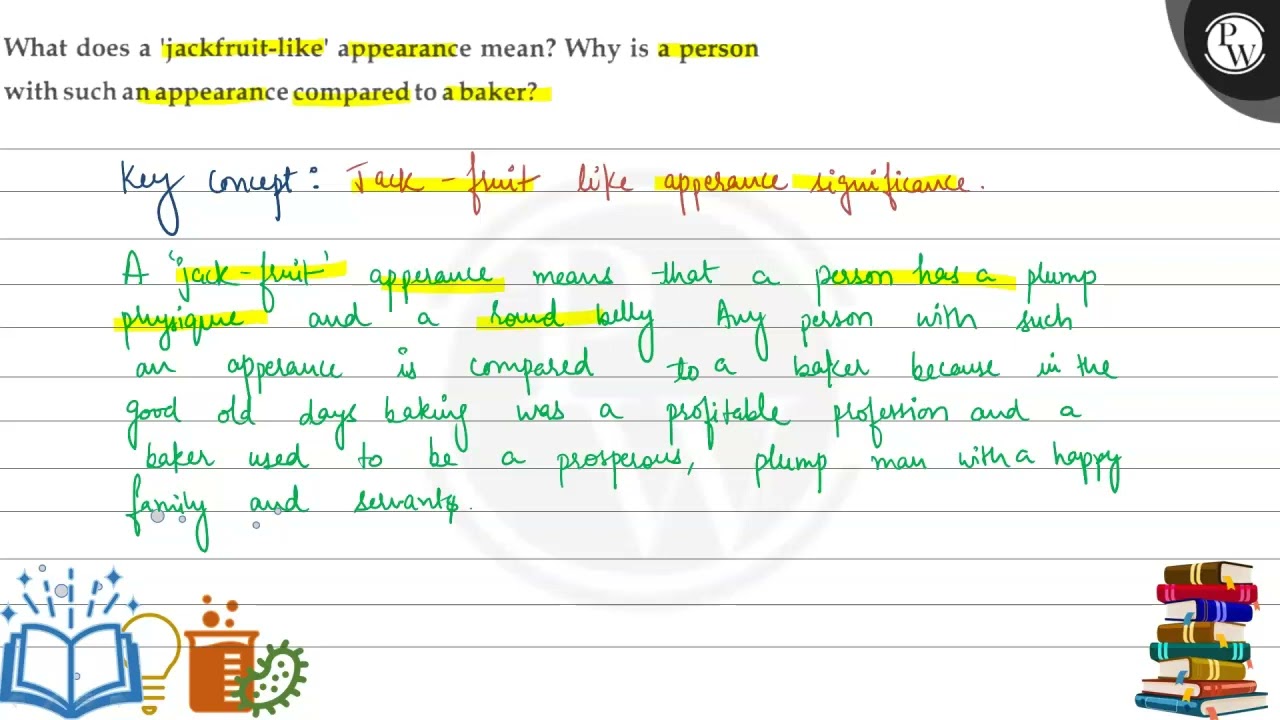 What does a 'jackfruit-like' appearance mean? Why is a person
with such an appearance compared to a baker?
PW
Key concept: Jack-fruit like apperance significance.
A 'jack-fruit' apperance means that a person has a plump
physique and a round belly Any person with such
an apperance is compared to a baker because in the
good old days baking was a profitable profession and a
baker used to be a prosperous, plump man with a happy
family and servants.